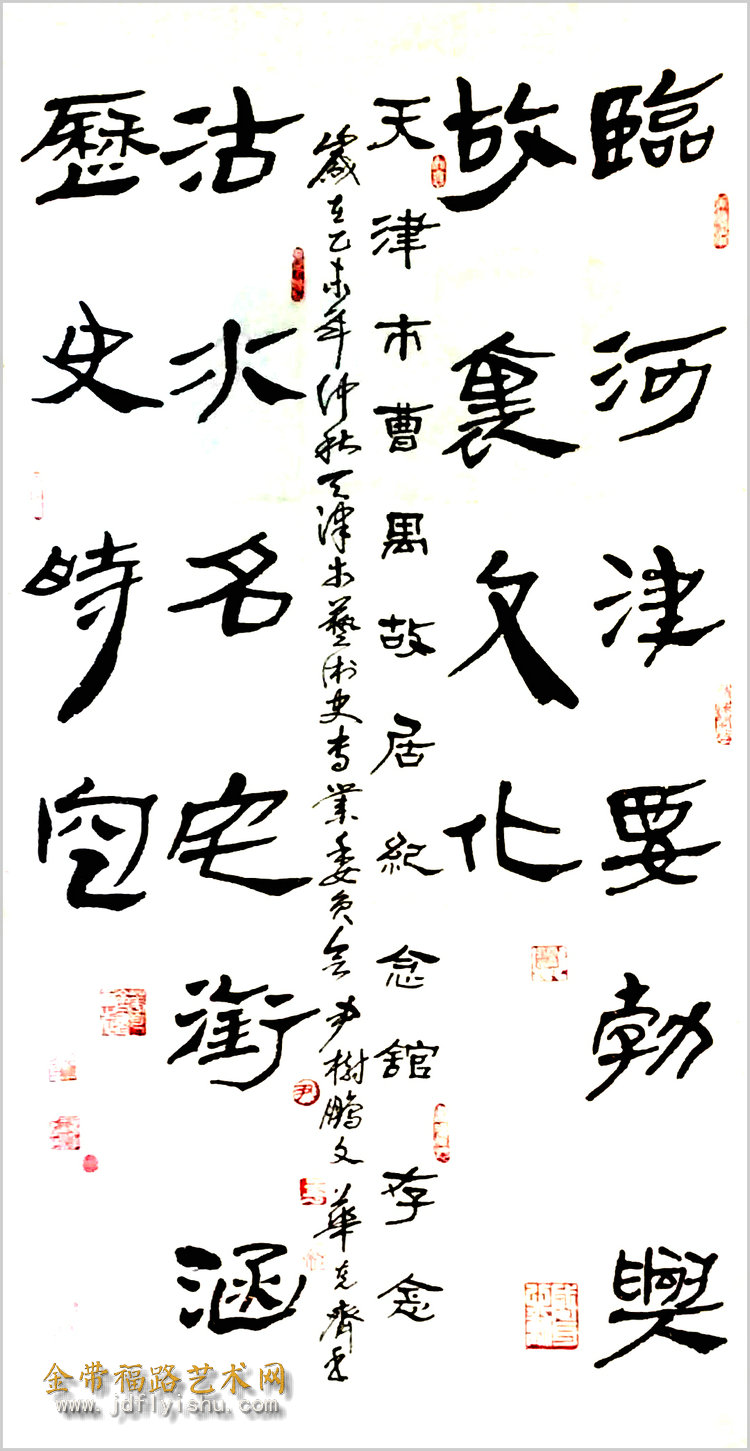 臨河津要勃興
故裏文化
天津市曹禺故居紀念館存念
歲在乙未年仲秋天津市藝術史專業委員會尹樹鵬文華克齊書
沽水名宅銜涵
歷史時空
尹
金带福路艺术网
www.jdflyishu.com